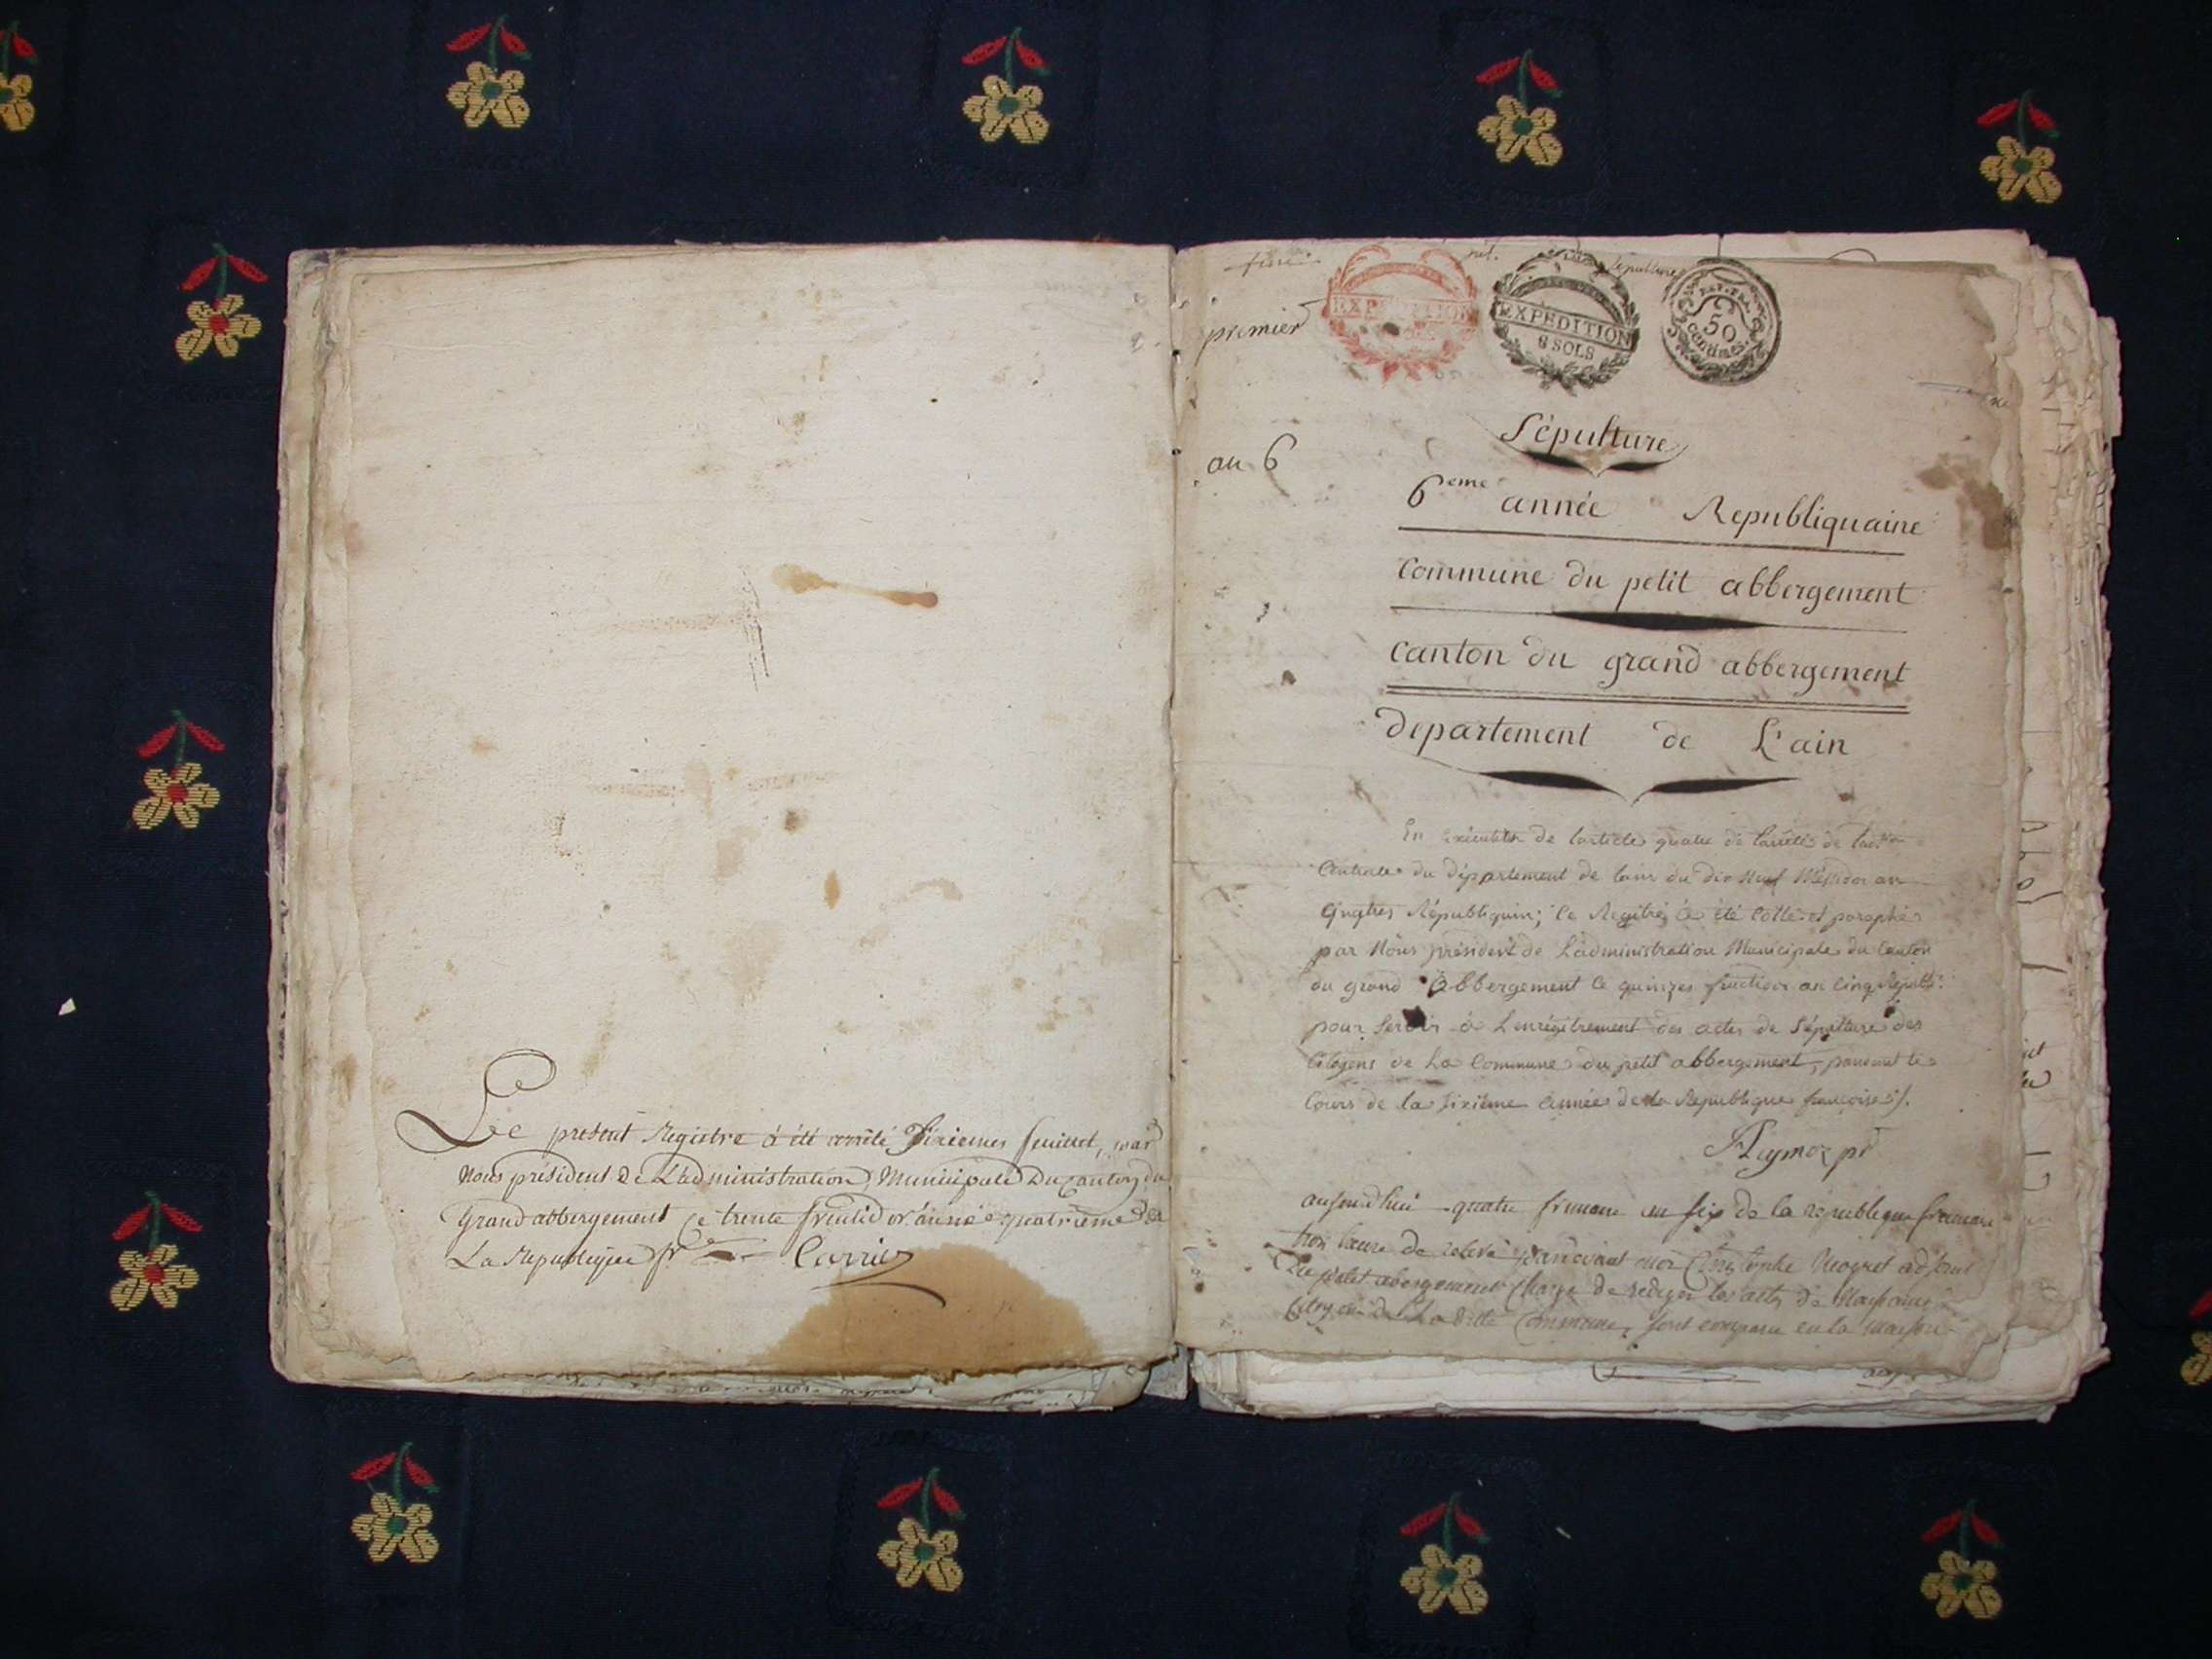 Le present Registre à été arrêté Sixiemes feuillet, par
Nous président De L'administration Municipale Du Canton du
Grand abbergement Ce trente fructidor année quatrième de
La Republique fr Carrier
premier
EXPEDITION
EXPEDITION
8 SOLS
REP. FRA.
50
Centimes.
Sépulture
an 6
Sépulture
6eme année Republiquaine
Commune du petit abbergement
Canton du grand abbergement
departement de L'ain
En exécution de larticle quatre de larrêté de
Centrale du département de lain du dix Neuf Messidor an
Républiquin; Ce Regitre à été Cotté et paraphé
par Nous président de Ladministration Municipale du Canton
du grand Abbergement le quinzes fructidor an Cinq Républ:
pour Servir à Lenrégitrement des actes de Sépulture des
Citoyens de La Commune du petit abbergement, pendant le
Cours de la sixième année de la Republique françoise /.
Reymoz pt
aujourd'hui quatre frimaire an six de la republique francaise
trois heure de relevé pardevant moi Cristophe adjoint
Du petit abergement Charge de rediger les actes de
Citoyens de La ditte Commune, sont comparu en la maison